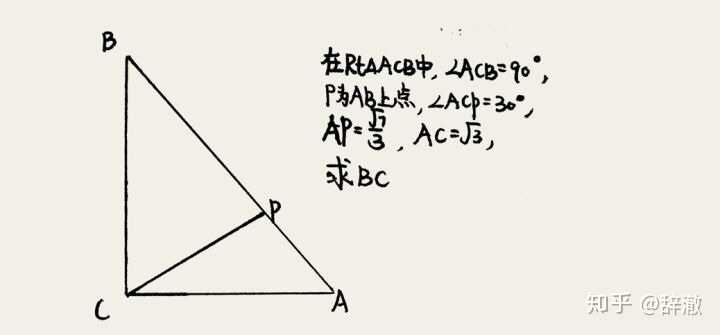 在Rt△ACB中, ∠ACB=90°,
P为AB上点, ∠ACP=30°,
AP=√7/3, AC=√3,
求BC
B
P
C
A
知乎 @辞澈